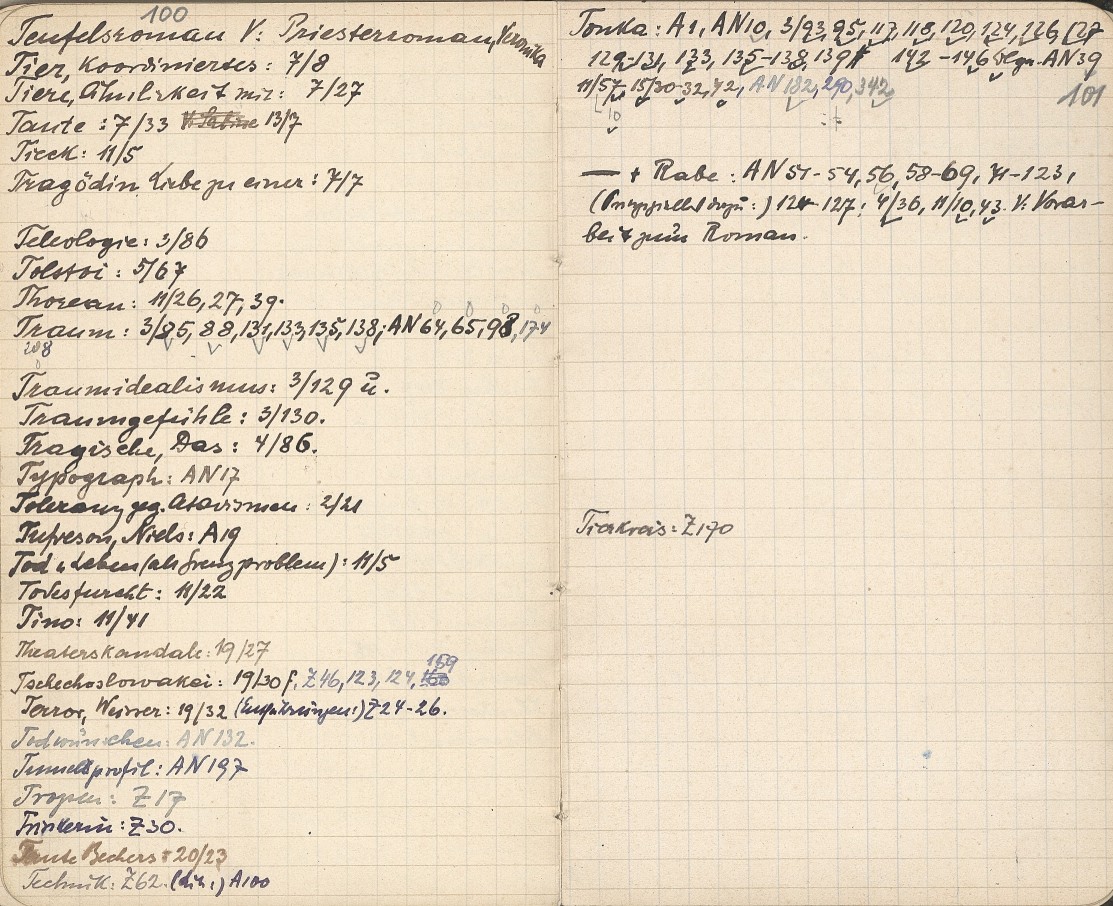 100
Teufelsroman V: Priesterroman, Veronika
Tier, koordiniertes: 7/8
Tiere, Ähnlichkeit mit: 7/27
Tante: 7/33 13/7
Tieck: 11/5
Tragödin Liebe zu einer: 7/7
Teleologie: 3/86
Tolstoi: 5/67
Thoreau: 11/26, 27, 39.
Traum: 3/85, 88, 131, 133, 135, 138; AN 64, 65, 98, 174
208
Traumidealismus: 3/129 u.
Traumgefühle: 3/130.
Tragische, Das: 4/86.
Typograph: AN 17
Toleranz geg. Atavismen: 2/21
Tufreson, Niels: A19
Tod u Leben (als Grenzproblem): 11/5
Todesfurcht: 11/22
Tino: 11/41
Theaterskandale: 19/27
Tschechoslowakei: 19/30 f, Z46, 123, 124, 159
Terror, Weisser: 19/32 (Entführungen:) Z24-26.
Todwünschen: AN 132.
Tunnelprofil: AN 197
Tropen: Z 17
Trinkerin: Z30.
Tante Bechers: 20/23
Technik: Z62. A100
Tonka: A1, AN10, 3/93, 95, 117, 118, 120, 124, 126, 127
129-131, 133, 135-138, 139 142-146 AN39
11/57, 15/30-32, 42, AN 182, 290, 342
10
101
— + Rabe: AN 51-54, 56, 58-69, 71-123,
(Prinzipielles dazu:) 124-127; 4/36, 11/10, 43. V: Vorar-
beit zum Roman.
Tierkreis: Z170